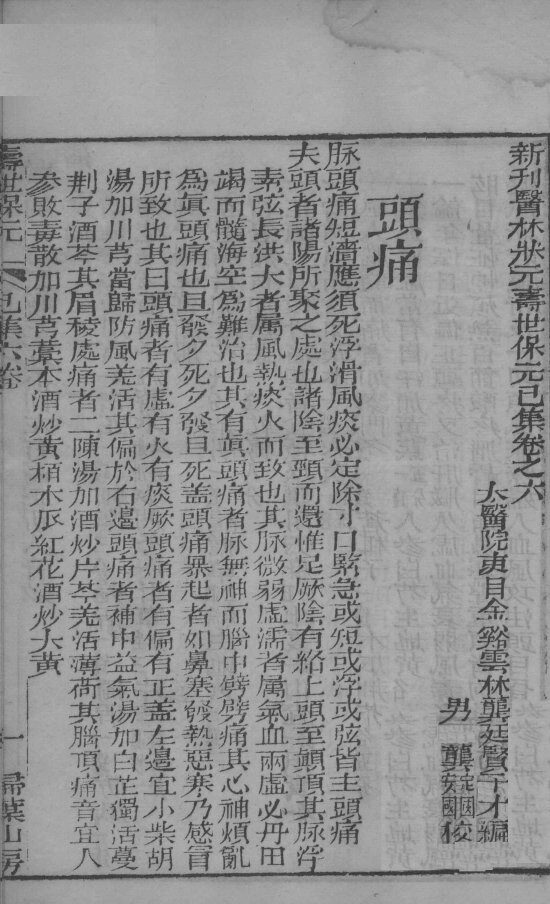 新刊醫林狀元壽世保元己集卷之六
太醫院吏目金谿雲林龔廷賢子才編
男 龔定國安國校
頭痛
脉頭痛短濇應須死浮滑風痰必定除寸口緊急或短或浮或弦皆主頭痛
夫頭者諸陽所聚之處也諸陰至頸而還惟足厥陰有絡上頭至巔頂其脉浮
素弦長洪大者屬風熱痰火而致也其脉微弱虛濡者屬氣血兩虛必丹田
竭而髓海空為難治也其有眞頭痛者脉無神而腦中劈劈痛其心神煩亂
爲眞頭痛也旦發夕死夕發旦死盖頭痛暴起者如鼻塞發熱惡寒乃感冒
所致也其曰頭痛者有虛有火有痰厥頭痛者有偏有正盖左邊宜小柴胡
湯加川芎當歸防風羌活其偏於右邊頭痛者補中益氣湯加白芷獨活蔓
荆子酒芩其眉稜處痛者二陳湯加酒炒片芩羌活薄荷其腦頂痛音宜人
參敗毒散加川芎藁本酒炒黃栢木瓜紅花酒炒大黃
壽世保元 己集六卷 一 掃葉山房